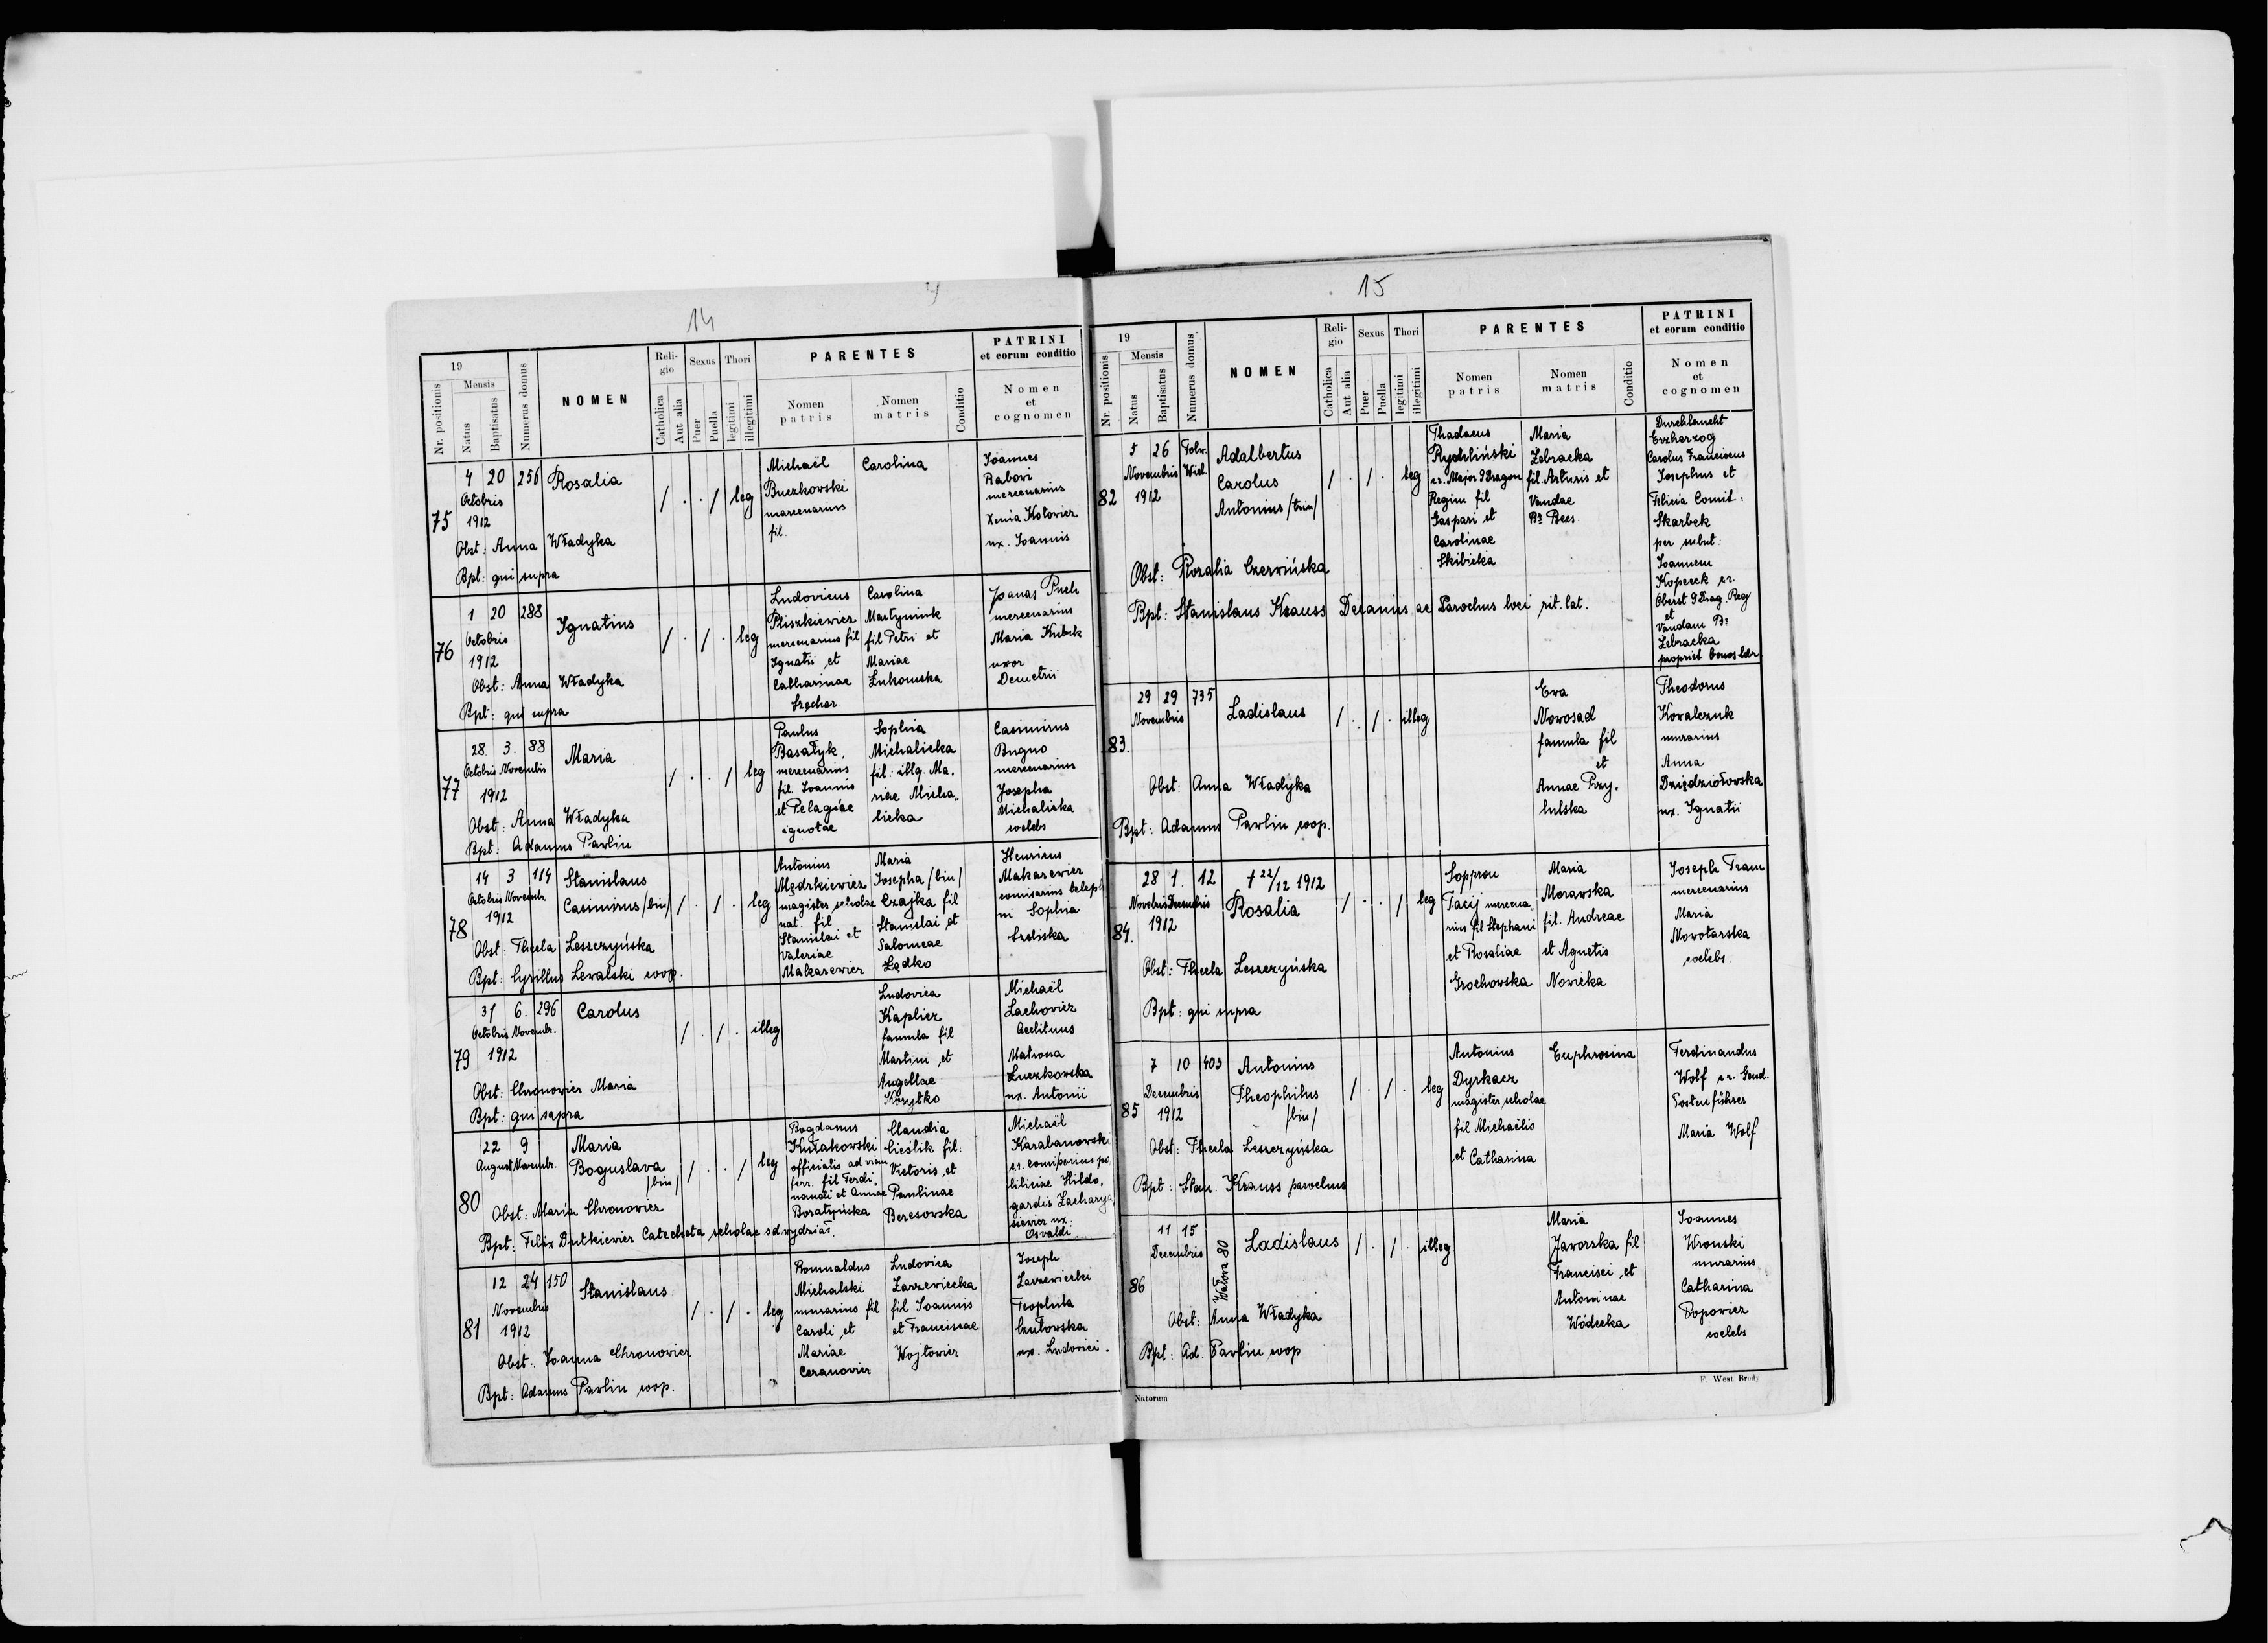 14
19
Nr. positionis
Mensis
Natus
Baptisatus
Numerus domus
NOMEN
Religio
Catholica
Aut alia
Sexus
Puer
Puella
Thori
legitimi
illegitimi
PARENTES
Nomen patris
Nomen matris
Conditio
PATRINI
et eorum conditio
Nomen
et
cognomen
75
4 20 256 Rosalia
Octobris
1912
/ . . / leg
Michaël
Buczkowski
mercenarius
fil.
Carolina
Joannes
Babovi
mercenarius
Xenia Kotowicz
ux. Joannis
Obst: Anna Władyka
Bpt: qui supra
76
1 20 288 Ignatius
Octobris
1912
/ . / . leg
Ludovicus
Pliszkiewicz
mercenarius fil
Ignatii et
Catharinae
Szechar
Carolina
Martyniuk
fil Petri et
Mariae
Lukomska
Panas Puch
mercenarius
Maria Kubik
uxor
Demetrii
Obst: Anna Władyka
Bpt: qui supra
77
28. 3. 88 Maria
Octobris Novembris
1912
/ . . / leg
Paulus
Basałyk,
mercenarius
fil. Joannis
et Pelagiae
ignotae
Sophia
Michalicka
fil: illg. Ma-
riae Micha-
licka
Casimirus
Bugno
mercenarius
Josepha
Michalicka
coelebs
Obst: Anna Władyka
Bpt: Adamus Pawlin
78
14 3 114 Stanislaus
Octobris Novembr.
1912
Casimirus /bin/ / . / . leg
Antonius
Mędrkiewicz
magister scholae
nat. fil
Stanislai et
Valeriae
Makarewicz
Maria
Josepha /bin/
Czajka fil
Stanislai et
Salomeae
Lędko
Henricus
Makarewicz
comisarius teleph
ni Sophia
Srdiska
Obst: Thecla Leszczyńska
Bpt: Cyrillus Lewalski coop.
79
31 6. 296 Carolus
Octobris Novembr.
1912
/ . / . illeg
Ludovica
Kaplicz
famula fil
Martini et
Angellae
Korytko
Michaël
Lachowicz
Aedituus
Matrona
Łuczkowska
ux. Antonii
Obst: Chronowicz Maria
Bpt: qui supra
80
22 9 Maria
August Novembr.
Boguslava
/bin/
/ . . / leg
Bogdanus
Kułakowski
officialis ad viam
ferr. fil Ferdi-
nandi et Annae
Boratyńska
Claudia
Cieślik fil:
Victoris et
Paulinae
Beresowska
Michaël
Karabanowski
cr. comisarius po
liticiae Hilde-
gardis Zacharya
siewicz ux:
Osvaldi
Obst: Maria Chronowicz
Bpt: Felix Dutkiewicz Catecheta scholae 8d wydział.
81
12 24 150 Stanislaus
Novembris
1912
/ . / . leg
Romualdus
Michalski
murarius fil
Caroli et
Mariae
Ceranowicz
Ludovica
Zarzewiecka
fil Joannis
et Franciscae
Wojtowicz
Joseph
Zarzewiecki
Teophila
Czułowska
ux. Ludovici.
Obst: Joanna Chronowicz
Bpt: Adamus Pawlin coop.
15
19
Nr. positionis
Mensis
Natus
Baptisatus
Numerus domus
NOMEN
Religio
Catholica
Aut alia
Sexus
Puer
Puella
Thori
legitimi
illegitimi
PARENTES
Nomen patris
Nomen matris
Conditio
PATRINI
et eorum conditio
Nomen
et
cognomen
82
5 26 Folw. Adalbertus
Novembris Wiel.
1912
Carolus
Antonius /trin/
/ . / . leg
Thadaeus
Rychliński
cr. Major 9 Dragon
Regim fil
Gaspari et
Carolinae
Skibicka
Maria
Zebracka
fil. Arturis et
Vandae
Br Bees.
Durchlaucht
Erzherzog
Carolus Franciscus
Josephus et
Felicia Comit:
Skarbek
per subst:
Joannem
Kopecek cr.
Oberst 9 Drag. Reg
et
Vandam Br
Zebracka
propriet bonos tabr
Obst: Rozalia Czerwińska
Bpt: Stanislaus Krauss Decanus ac Parochus loci rit. lat.
83.
29 29 735 Ladislaus
Novembris
/ . / . illeg
Eva
Nowosad
famula fil
et
Annae Przy-
lutska
Theodorus
Kowalczuk
murarius
Anna
Dziędziołowska
ux. Ignatii
Obst: Anna Władyka
Bpt: Adamus Pawlin coop.
84.
28 1. 12 † 22/12 1912
Novebris Decembris
1912
Rosalia / . . / leg
Soppron
Tacij mercena
rius fil Stephani
et Rosaliae
Grochowska
Maria
Morawska
fil. Andreae
et Agnetis
Nowicka
Joseph Fram
mercenarius
Maria
Nowotarska
coelebs.
Obst: Thecla Leszczyńska
Bpt: qui supra
85
7 10 403 Antonius
Decembris
1912
Theophilus
/bin/
/ . / . leg
Antonius
Dyrkacz
magister scholae
fil Michaëlis
et Catharina
Euphrosina
Ferdinandus
Wolf cr. Gend.
Postenführer
Maria Wolf
Obst: Thecla Leszczyńska
Bpt: Stan. Krauss parochus
86
11 15 Wałowa 80
Decembris
Ladislaus / . / . illeg
Maria
Jaworska fil
Francisci et
Antoninae
Wódecka
Joannes
Wronski
murarius
Catharina
Popowicz
coelebs
Obst: Anna Władyka
Bpt: Ad. Pawlin coop
Natorum
F. West Brody